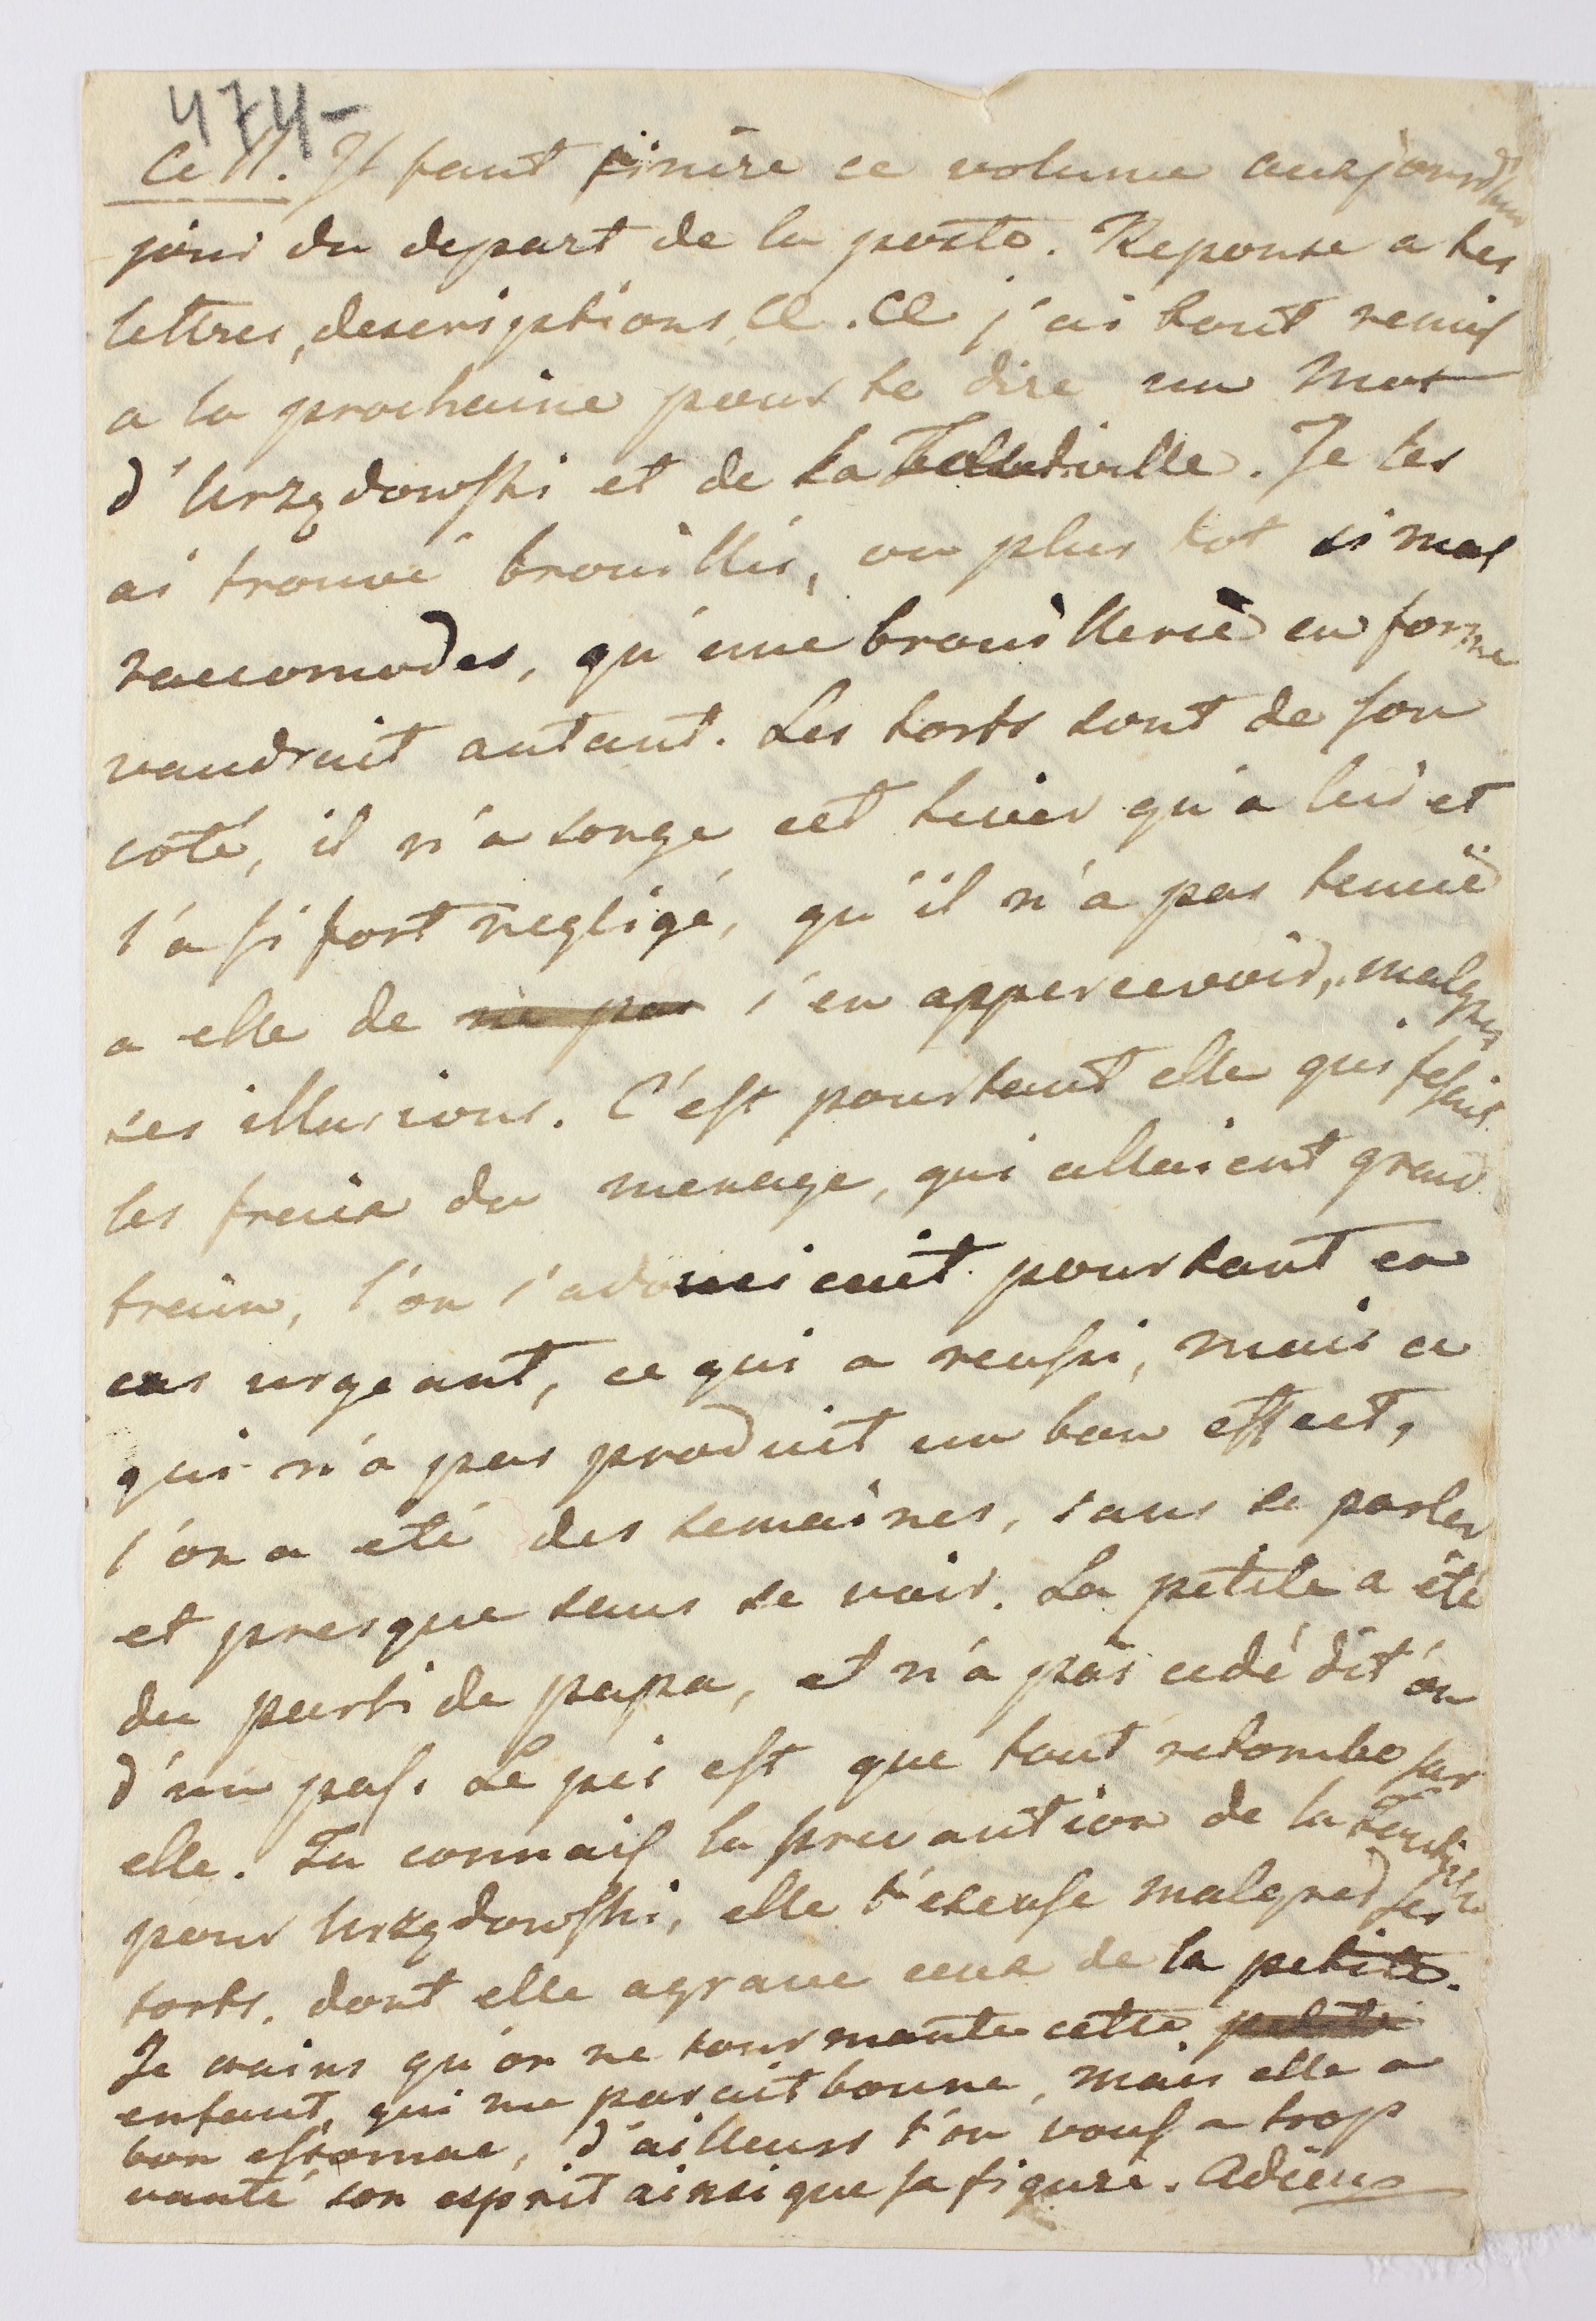 474-
Ce 11. Il faut finire ce volume aurjourd'hui
jour du depart de la poste. Reponse a tes
lettres, descriptions, &. & j'ai tout remis
a la prochaine pour te dire un mot
d'Urzędowski et de la
. Je les
ai trouvé brouillés, ou plus tot si mal
raccomodes, qu'une brouillerie en forme
vaudrait autant. Les torts sont de son
coté, il n'a songe cet hiver qu'a lui et
l'a si fort negligé, qu'il n'a pas tenuë
a elle de ne pas s'en appercevoir, malgré
ses illusions. C'est pourtant elle qui fesait
les frais du menage, qui allaient grand
train, l'on s'adonait pourtant en
cas urgeant, ce qui a reussi, mais ce
qui n'a pas produit un bon effect,
l'on a eté des semaines, sans se parler
et presque sans se voir. La petite a été
du parti de papa, et n'a pas cedé dit'on
d'un pas. Le pis est que tout retombe sur
elle. Tu connais la prevantion de la
pour Urzędowski, elle l'excuse malgred ses
torts, dont elle agrave ceux de la petite.
Je crains qu'on ne tourmante cette petite
enfant, qui me parait bonne, mais elle a
bon estomac, d'ailleurs l'on vous a trop
vanté son esprit ainsi que sa figure. Adieu